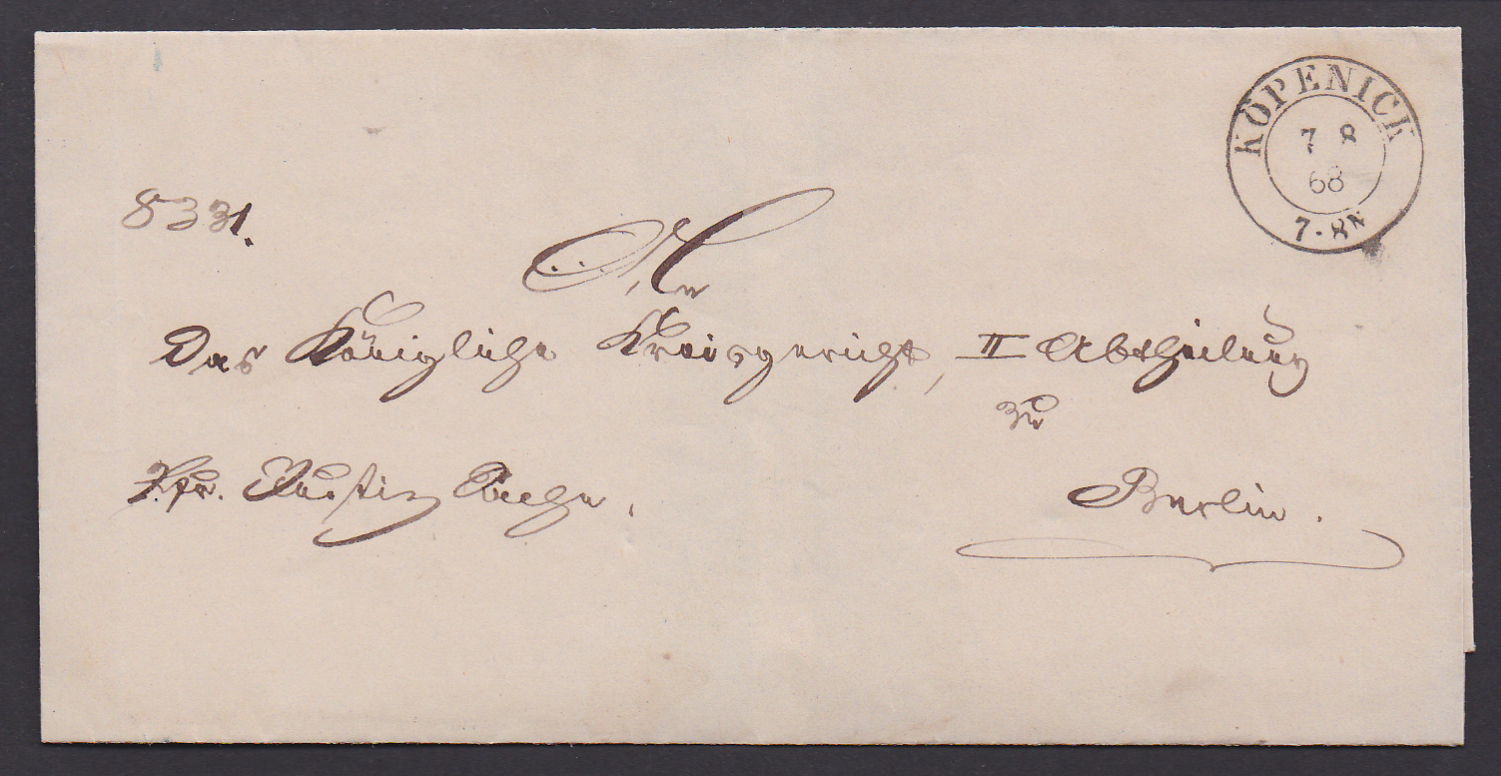 KÖPENICK
7 8
68
7-8N
8331.
An
Das Königliche Kreisgericht, II Abtheilung
zu
Berlin.
Justiz Sache.